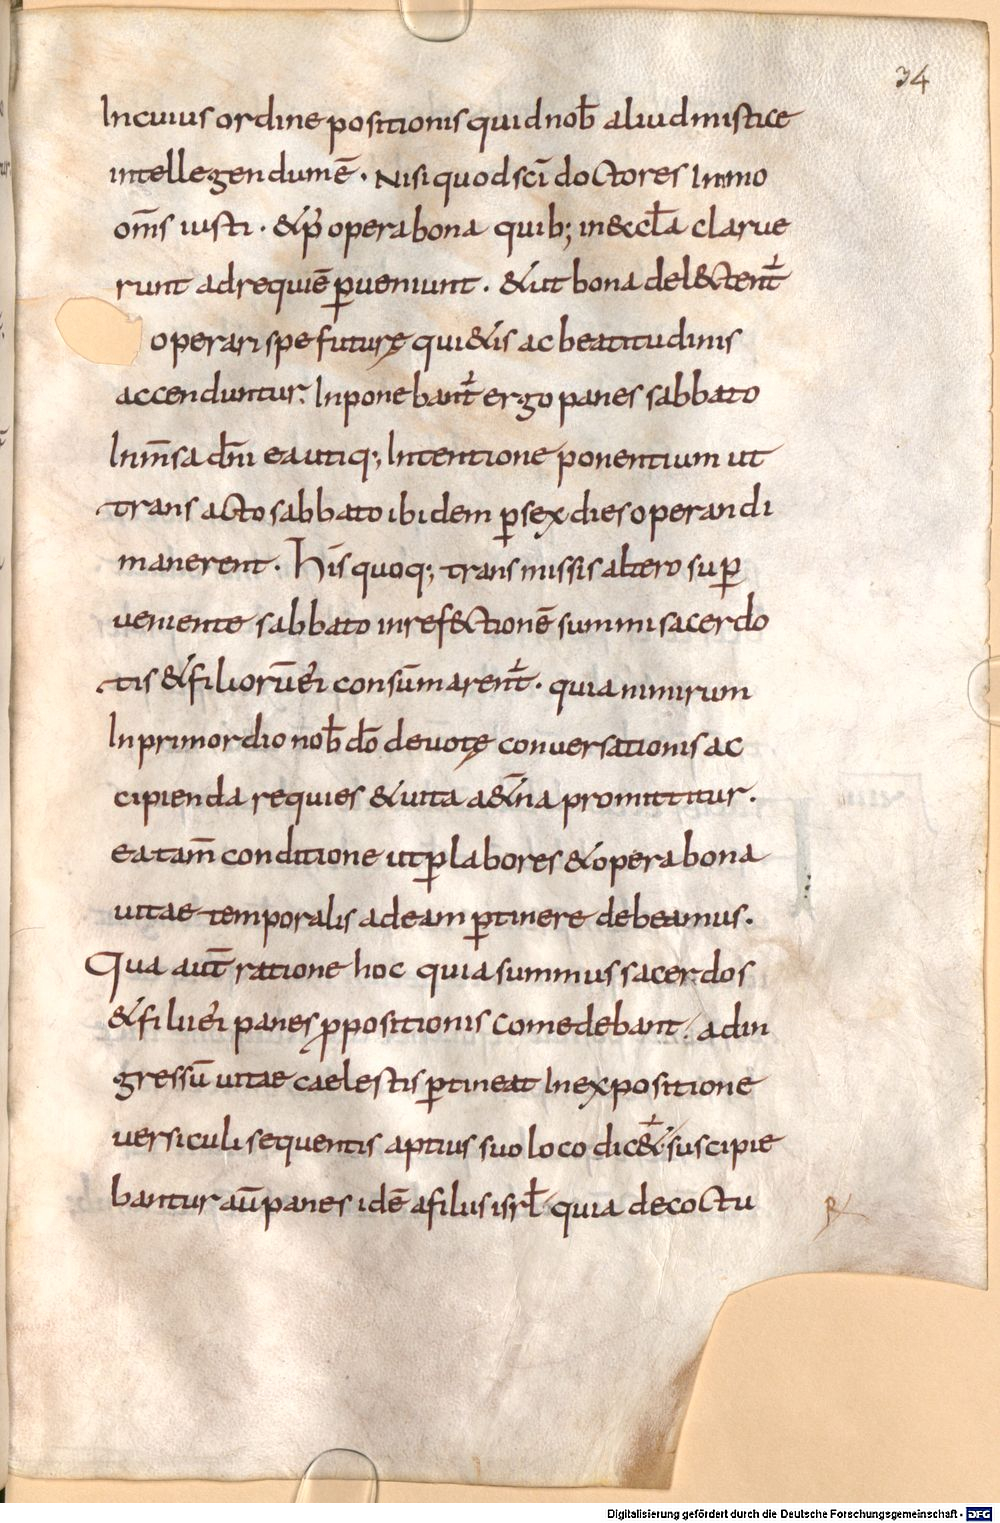 34
In cuius ordine positionis quid nob̄ aliud mistice
intellegendum ē. Nisi quod sc̄i doctores Immo
om̄s iusti. & p̄ opera bona quib; in &ccl̄a clarue
runt ad requiē ꝑueniunt. & ut bona del&tent᷑
operari spe futurę qui&is ac beatitudinis
accenduntur. Inponebant᷑ ergo panes sabbato
In m̄sa dn̄i ea utiq; Intentione ponentium ut
transacto sabbato ibidem ꝑ sex dies operandi
manerent. His quoq; transmissis altero suꝑ
ueniente sabbato in ref&tionē summi sacerdo
tis & filiorū ei consūmarent᷑. quia nimirum
In primordio nob̄ dō deuotę conuersationis ac
cipienda requies & uita a&n̄a promittitur.
ea tam̄ conditione ut ꝑ labores & opera bona
uitae temporalis ad eam ꝑtinere debeamus.
Qua aut̄ ratione hoc quia summus sacerdos
& filii ei panes ꝓpositionis comedebant. ad in
gressū uitae caelestis ꝑtineat In expositione
uersiculi sequentis aptius suo loco dic&᷑ suscipie
bantur aū panes idē a filiis isrl̄ quia decoctu
Digitalisierung gefördert durch die Deutsche Forschungsgemeinschaft - DFG